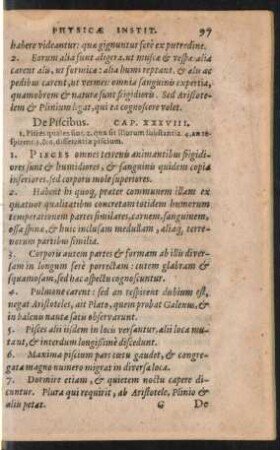 PHYSICÆ INSTIT. 97
habere videantur: quæ gignuntur ferè ex putredine.
2. Earum alia sunt aligera, ut musca & vespæ: alia
carent alis, ut formicæ: alia humi reptant, & aliis ac
pedibus carent, ut vermes: omnia sanguinis expertia,
quamobrem & naturæ sunt frigidioris. Sed Aristote-
lem & Plinium legat, qui ea cognoscere volet.
De Piscibus. CAP. XXXVIII.
1. Pisces quales sint. 2. quæ sit illorum substantia. 4. an re-
spirent. 5. &c. differentia piscium.
1. PISCES omnes terrenis animantibus frigidi-
ores sunt & humidiores, & sanguinis quidem copia
inferiores, sed corporis mole superiores.
2. Habent hi quoq, præter communem illam ex
quatuor qualitatibus concretam totidem humorum
temperationem partes similares, carnem, sanguinem,
ossa spina, & huic inclusam medullam, aliasq, ter-
renarum partibus similia.
3. Corporis autem partes & formam ab illis diver-
sam in longum ferè porrectam: cutem glabram &
squamosam, sed hac aspectu cognoscuntur.
4. Pulmone carent: sed an respirent dubium est,
negat Aristoteles, ait Plato, quem probat Galenus, &
in balenis nautæ satis observarunt.
5. Pisces alii iisdem in locis versantur, alii loca mu-
tant, & interdum longissimè discedunt.
6. Maxima piscium pars cœtu gaudet, & congre-
gata magno numero migrat in diversa loca.
7. Dormire etiam, & quietem noctu capere di-
cuntur. Plura qui requirit, ab Aristotele, Plinio &
aliis petat. G De